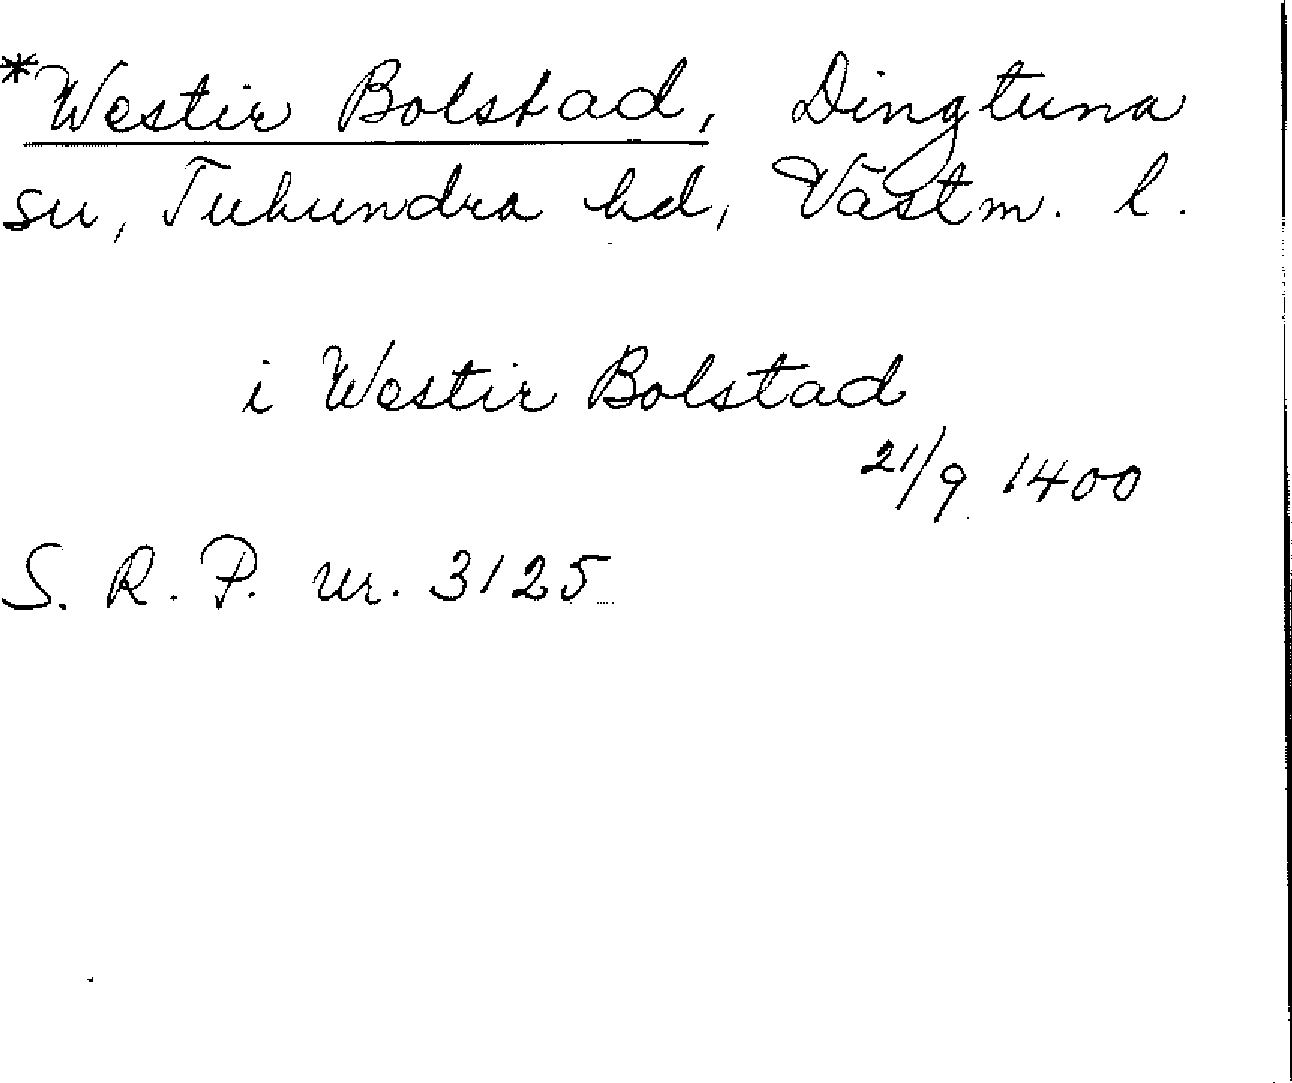 *Westir Bolstad, Dingtuna
sn, Tuhundra hd, Västm. l.
i Westir Bolstad
21/9 1400
S. R. P. nr. 3125